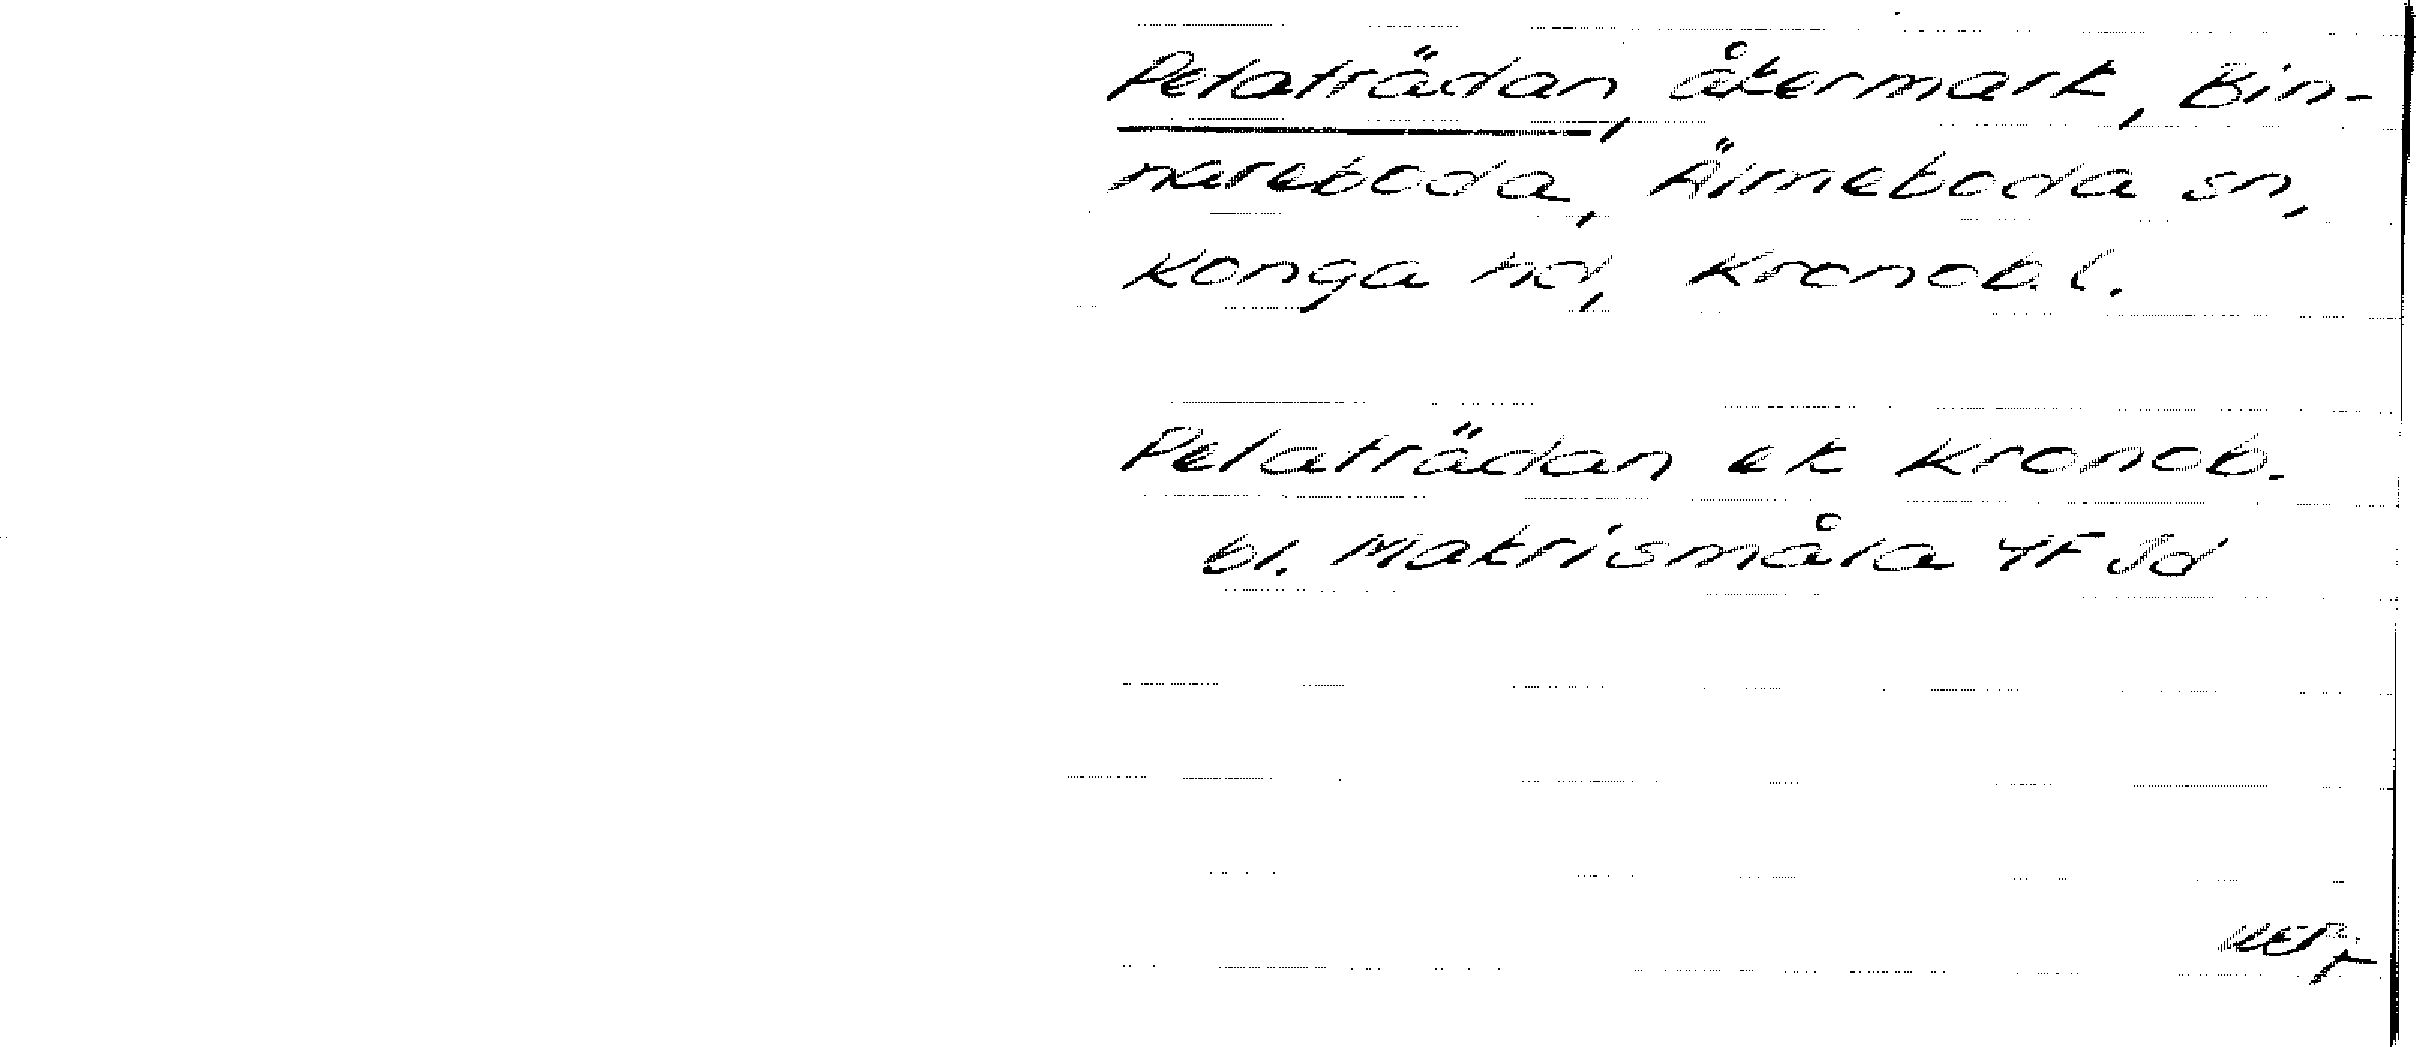 Pelaträdan, åkermark, Bin-
nareboda, Älmeboda sn,
Konga hd, Kronob. l.
Pelaträdan ek Kronob.
bl. Makrismåla 4F Jd